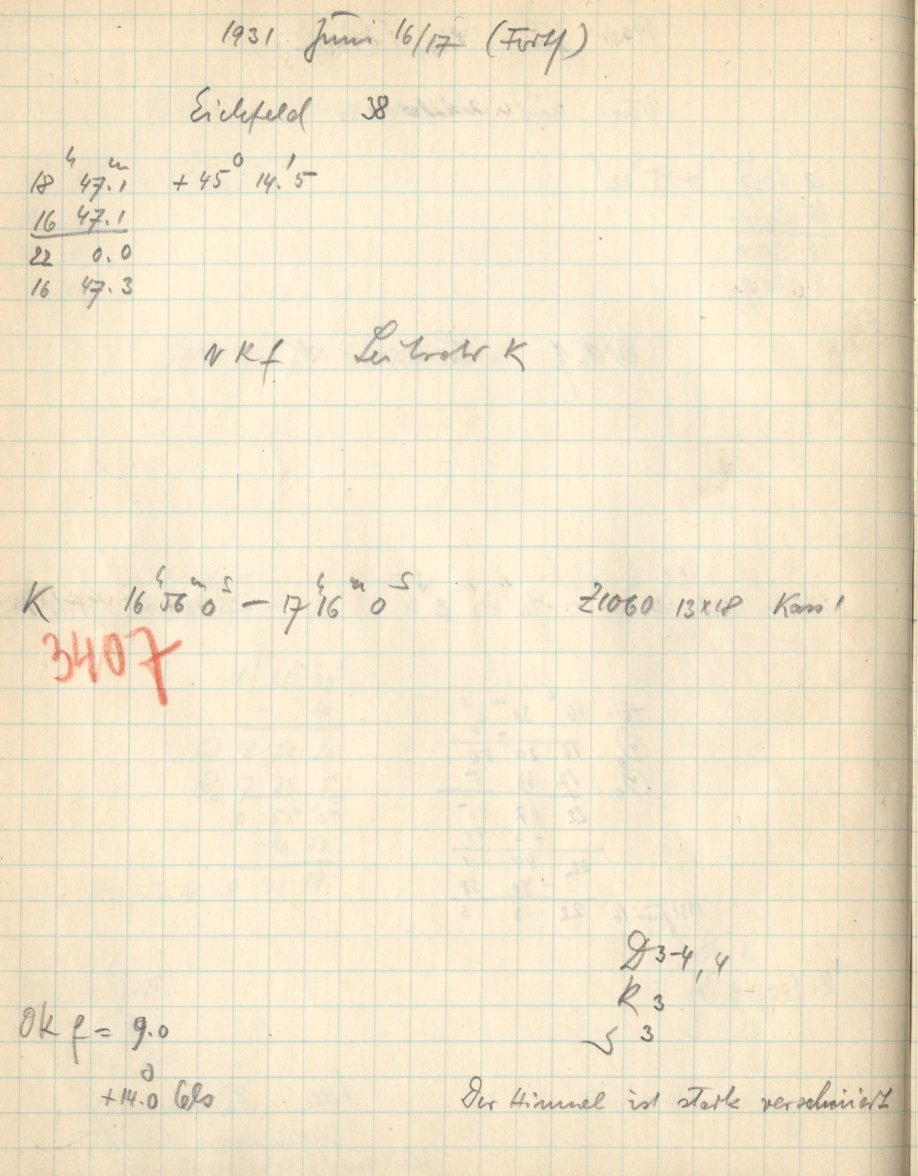 1931 Juni 16/17 (Forts)
Eichfeld 38
18ʰ 47.ᵐ1 +45° 14.'5
16 47.1
22 0.0
16 47.3
NKf Leitrohr K
K 16ʰ 56ᵐ 0ˢ – 17ʰ 16ᵐ 0ˢ Z1060 13x18 Kass 1
3407
D 3-4, 4
R 3
S 3
OK f = 9.0
+14.°0 Cels
Der Himmel ist stark verschmiert